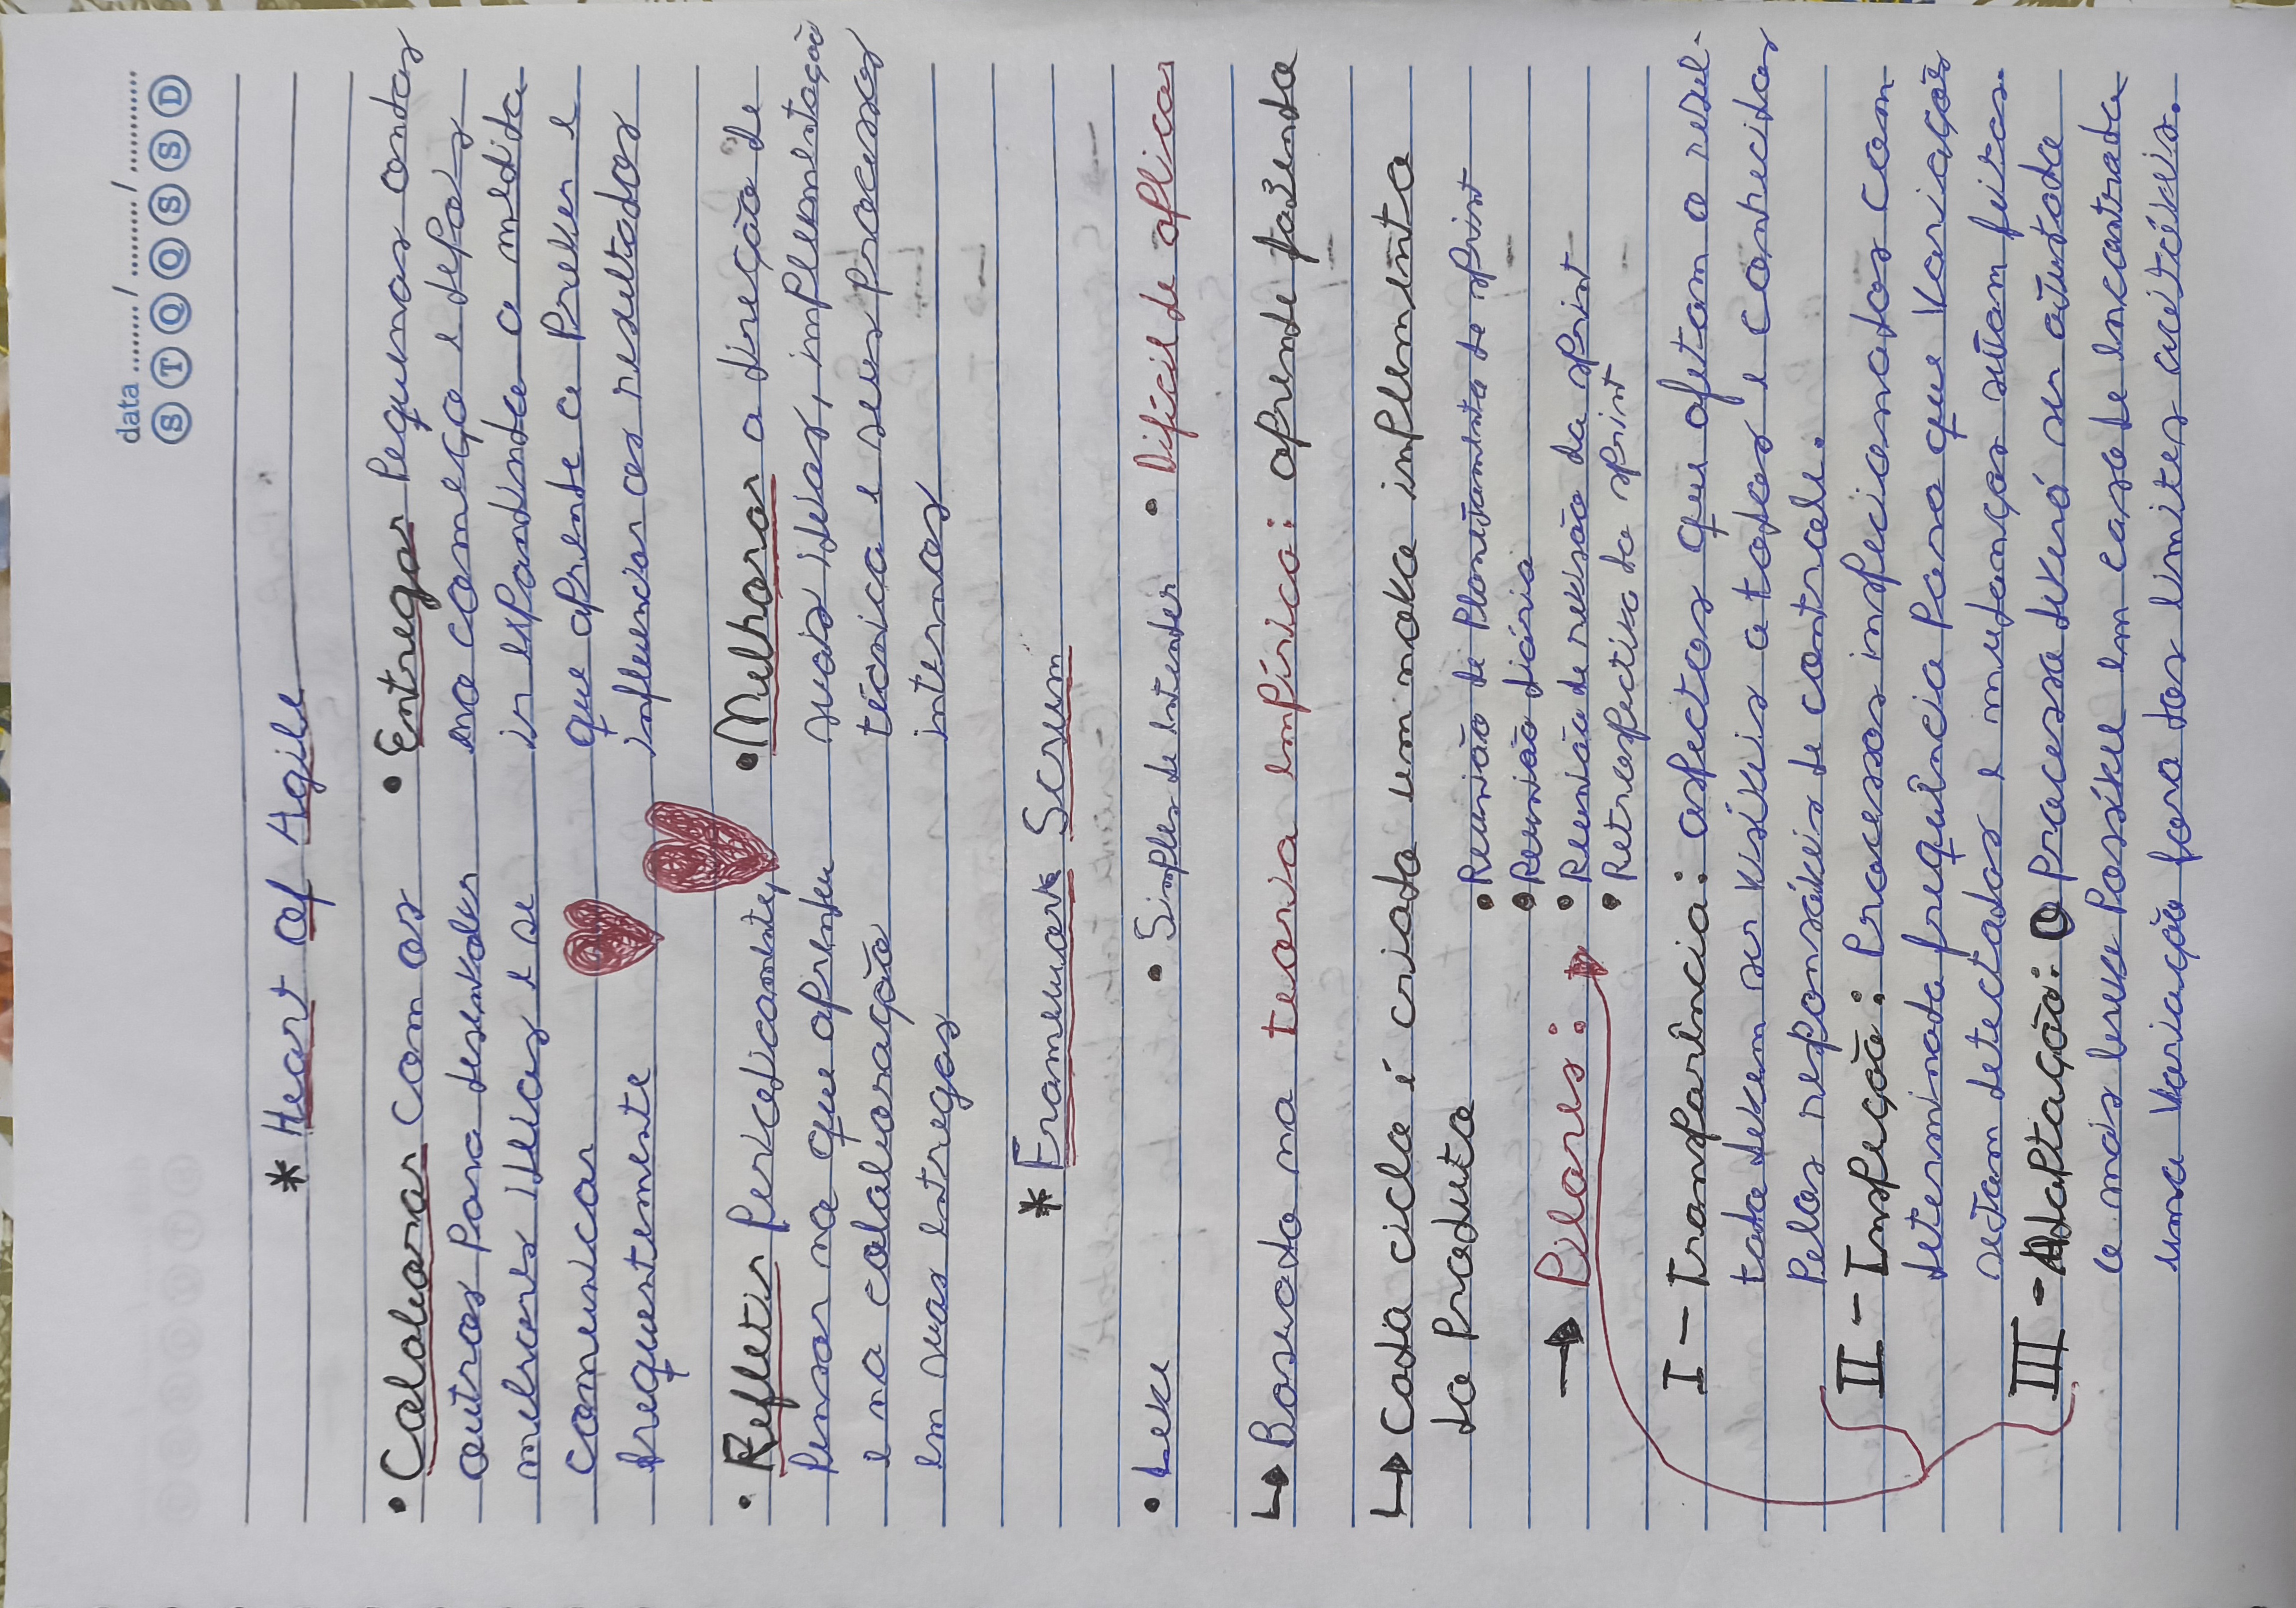 data ........ / ......... / ............
S T Q Q S S D
* Heart Of Agile
• Colaborar com os
outros para desenvolver
melhores ideias e se
comunicar
frequentemente
• Entregar pequenas ondas
no começo e depois
ir expandindo a medida
que aprende a prever e
influenciar os resultados
• Refletir periodicamente,
pensar no que aprendeu
e na colaboração
em suas entregas
• Melhorar a direção de
suas ideias, implementação
técnica e seus processos
internos
* Framework Scrum
• Leve • Simples de entender • Difícil de aplicar
↳ Baseado na teoria empírica: aprende fazendo
↳ Cada ciclo é criado um novo inplemento
do produto
• Reunião de planejamento de sprint
• Reunião diária
→ Pilares: → • Reunião de revisão da sprint
• Retrospectiva da sprint
I - Transparência: aspectos que afetam o resul-
tado devem ser visíveis a todos e conhecidos
pelos responsáveis de controle.
II - Inspeção: Processos inspecionados com
determinada frequência para que variações
sejam detectadas e mudanças sejam feitas.
III - Adaptação: O processo deverá ser ajustado
o mais breve possível em caso de encontrado
uma variação fora dos limites aceitáveis.